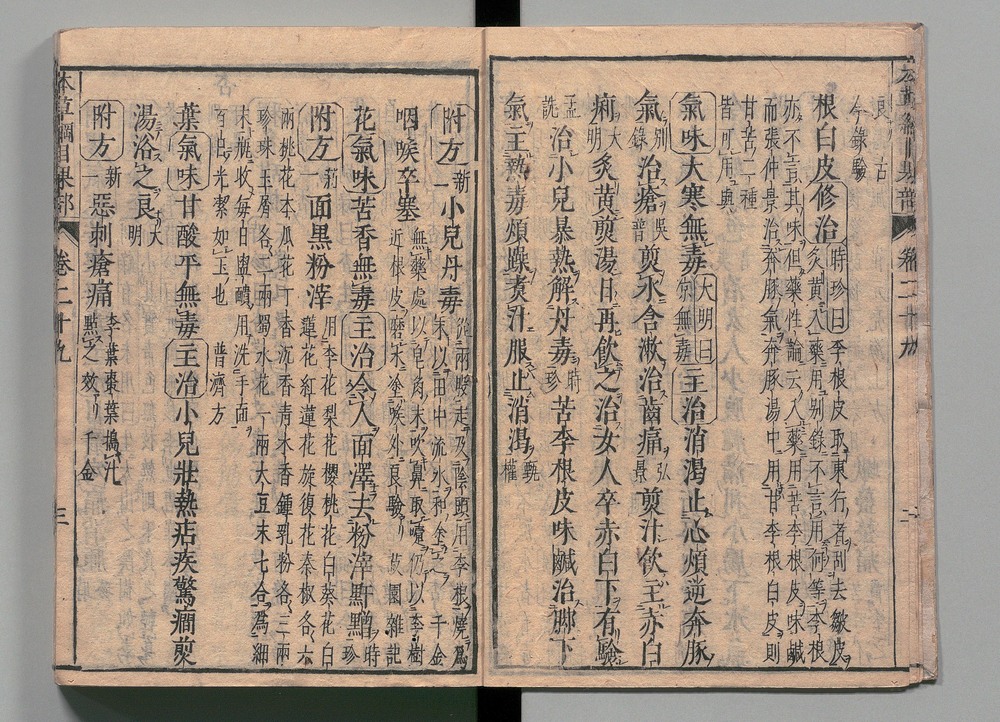 今錄驗
根白皮修治時珍曰李根皮取東行者刮去皺皮
炙黃入藥用別錄不言用何等李根
亦不言其味但藥性論云入藥用苦李根皮味鹹
而張仲景治奔豚氣奔豚湯中用甘李根白皮則
甘苦二種
皆可用與
氣味大寒無毒大明曰
涼無毒主治消渴止心煩逆奔豚
氣別
錄治瘡吳
普煎水含漱治齒痛弘
景煎汁飲主赤白
痢大
明炙黃煎湯日再飲之治女人卒赤白下有驗
孟
詵治小兒暴熱解丹毒時
珍苦李根皮味鹹治脚下
氣主熱毒煩躁煮汁服止消渴甄
權
附方一新小兒丹毒從兩股走及陰頭用李根燒爲
末以田中流水和塗之千金
咽喉卒塞無藥處以皂角末吹鼻取嚏仍以李樹
近根皮磨水塗喉外良驗
花氣味苦香無毒主治令人面澤去粉滓𪒟䵳時
珍
附方一新面黑粉滓用李花梨花櫻桃花白葵花白
蓮花紅蓮花旋復花秦椒各六
兩桃花木瓜花丁香沉香青木香鍾乳粉各三兩
珍珠玉屑各二兩蜀水花一兩大豆末七合爲細
末瓶收每日盥靧用洗手面
百日光潔如玉也普濟方
葉氣味甘酸平無毒主治小兒壯熱痁疾驚癇煎
湯浴之良大
明
附方一新惡刺瘡痛李葉棗葉搗汁
點之效千金
本草綱目果部 卷二十九 三